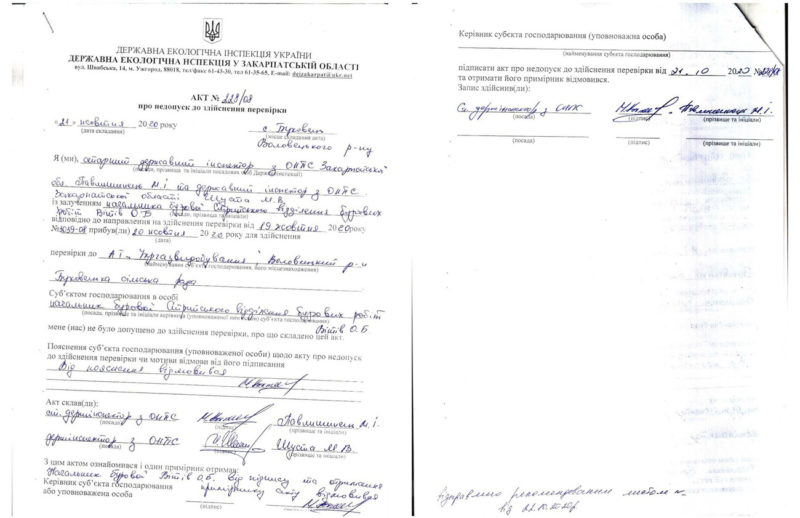 ДЕРЖАВНА ЕКОЛОГІЧНА ІНСПЕКЦІЯ УКРАЇНИ
ДЕРЖАВНА ЕКОЛОГІЧНА ІНСПЕКЦІЯ У ЗАКАРПАТСЬКІЙ ОБЛАСТІ
вул. Швабська, 14, м. Ужгород, 88018, тел/факс 61-43-30, тел 61-35-65, E-mail: deizakarpat@ukr.net
АКТ № 229/08
про недопуск до здійснення перевірки
«21» жовтня 2020 року с. Буковець
(дата складання) (місце складання акта)
Воловецького р-ну
Я (ми), старший державний інспектор з ОНПС Закарпатської
обл. Павлишинець М.І. та державний інспектор з ОНПС
Закарпатської області Шуста М.В.
із залученням начальника бурової Стрийського відділення бурових
робіт Вітів О.Б.
відповідно до направлення на здійснення перевірки від 19 жовтня 2020 року
№ 3059-08 прибув(ли) 20 жовтня 2020 року для здійснення
(дата)
перевірки до АТ "Укргазвидобування", Воловецький р-н
(найменування суб'єкта господарювання, його місцезнаходження)
Буковецька сільська рада
Суб'єктом господарювання в особі
начальник бурової Стрийського відділення бурових робіт
(посада, прізвище та ініціали керівника (уповноваженої ним особи) суб'єкта господарювання)
Вітів О.Б
мене (нас) не було допущено до здійснення перевірки, про що складено цей акт.
Пояснення суб'єкта господарювання (уповноваженої особи) щодо акту про недопуск
до здійснення перевірки чи мотиви відмови від його підписання
Від пояснення відмовився
Акт склав(ди):
ст. держінспектор з ОНПС Павлишинець М.І.
(посада) (підпис) (прізвище та ініціали)
держінспектор з ОНПС Шуста М.В.
(посада) (підпис) (прізвище та ініціали)
З цим актом ознайомився і один примірник отримав:
Начальник бурової Вітів О.Б. від підпису та отримання
Керівник суб'єкта господарювання примірнику акту відмовився
або уповноважена особа (підпис)
Керівник субєкта господарювання (уповноважена особа)
(найменування субєкта господарювання)
підписати акт про недопуск до здійснення перевірки від 21.10 2020 №229/08
та отримати його примірник відмовився.
Запис здійснив(ли):
Ст. держінспектор з ОНПС Павлишинець М.І.
(посада) (підпис) (прізвище та ініціали)
(посада) (підпис) (прізвище та ініціали)
Відправлено рекомендованим листом
від 22.10.2020р.